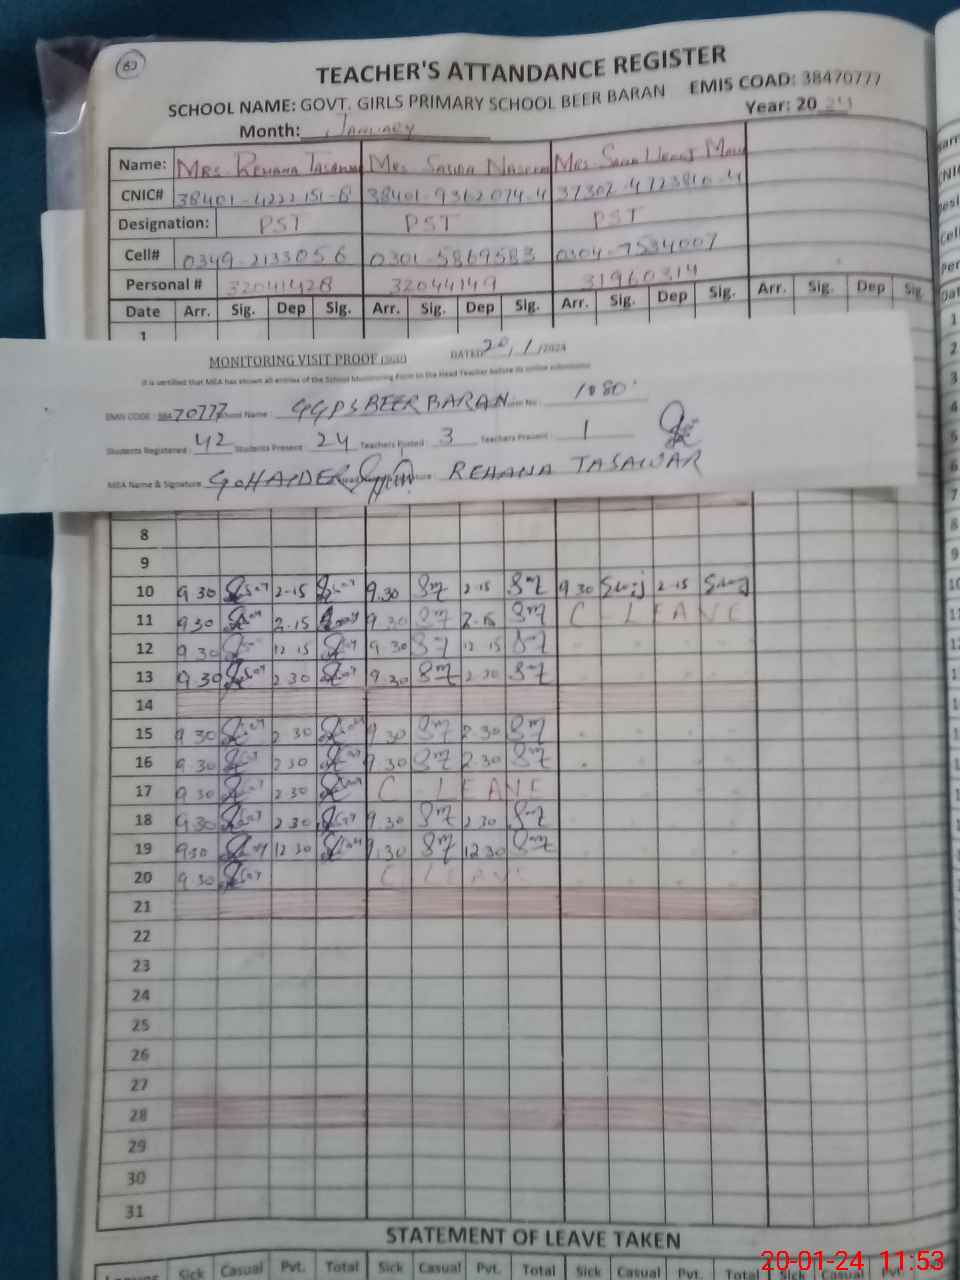 60
TEACHER'S ATTANDANCE REGISTER
SCHOOL NAME: GOVT. GIRLS PRIMARY SCHOOL BEER BARAN EMIS COAD: 38470777
Month: January Year: 2024
Name: MRS. REHANA TASAWAR MRS. SASWA NASEEM MRS.
CNIC# 38401-4222151-8 38401-9362074-4 37302-4723840-4
Designation: PST PST PST
Cell# 0349-2133056 0301-5869583 0304-7534007
Personal # 32041428 32044149 31960314
Date Arr. Sig. Dep Sig. Arr. Sig. Dep Sig. Arr. Sig. Dep Sig. Arr. Sig. Dep Sig.
1
MONITORING VISIT PROOF DATED 20/1/2024
It is certified that MEA has shown all entries of the School Monitoring Form to the Head Teacher before its online submission
EMIS CODE: 38470777 School Name: GGPS BEER BARAN Form No: 1080
Students Registered: 42 Students Present: 24 Teachers Posted: 3 Teachers Present: 1
MEA Name & Signature G. HAIDER REHANA TASAWAR
8
9
10 9.30 2.15 9.30 2.15 9.30 2.15
11 9.30 2.15 9.30 2.15 C LEAVE
12 9.30 12.15 9.30 12.15
13 9.30 2.30 9.30 2.30
14
15 9.30 2.30 9.30 2.30
16 9.30 2.30 9.30 2.30
17 9.30 2.30 C LEAVE
18 9.30 2.30 9.30 2.30
19 9.30 12.30 9.30 12.30
20 9.30 C LEAVE
21
22
23
24
25
26
27
28
29
30
31
STATEMENT OF LEAVE TAKEN
Leaves Sick Casual Pvt. Total Sick Casual Pvt. Total Sick Casual Pvt. Total Sick Casual Pvt.
20-01-24 11:53